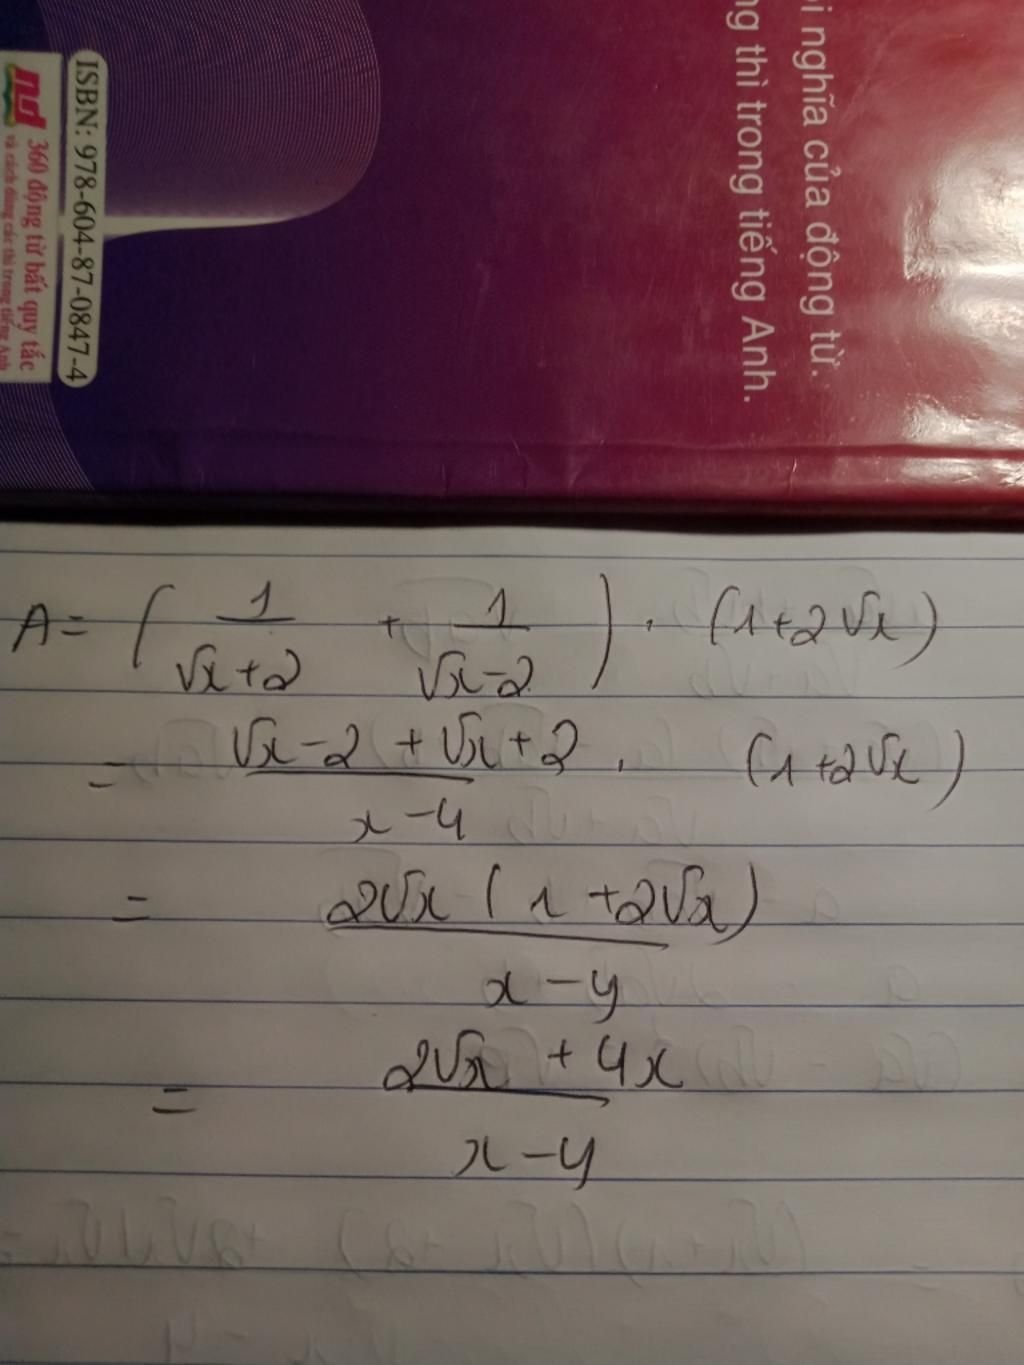 ối nghĩa của động từ.
ng thì trong tiếng Anh.
ISBN: 978-604-87-0847-4
nd
360 động từ bất quy tắc
và cách dùng các thì trong tiếng Anh
A = ( 1/(√x+2) + 1/(√x-2) ) . (1+2√x)
= (√x-2+√x+2)/(x-4) . (1+2√x)
= 2√x(1+2√x)/(x-y)
= (2√x+4x)/(x-y)